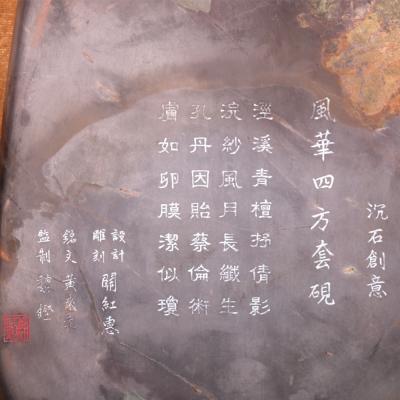 沉石創意
風華四方套硯
涇溪青檀抒倩影
浣紗風月長纖生
孔丹因貽蔡倫術
膚如卵膜潔似瓊
設計
雕刻 關紅惠
銘文 黃
監制